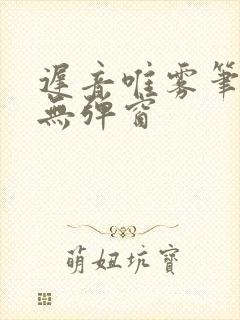 遲音唯雾筆
無弹窗
萌妞坑寶